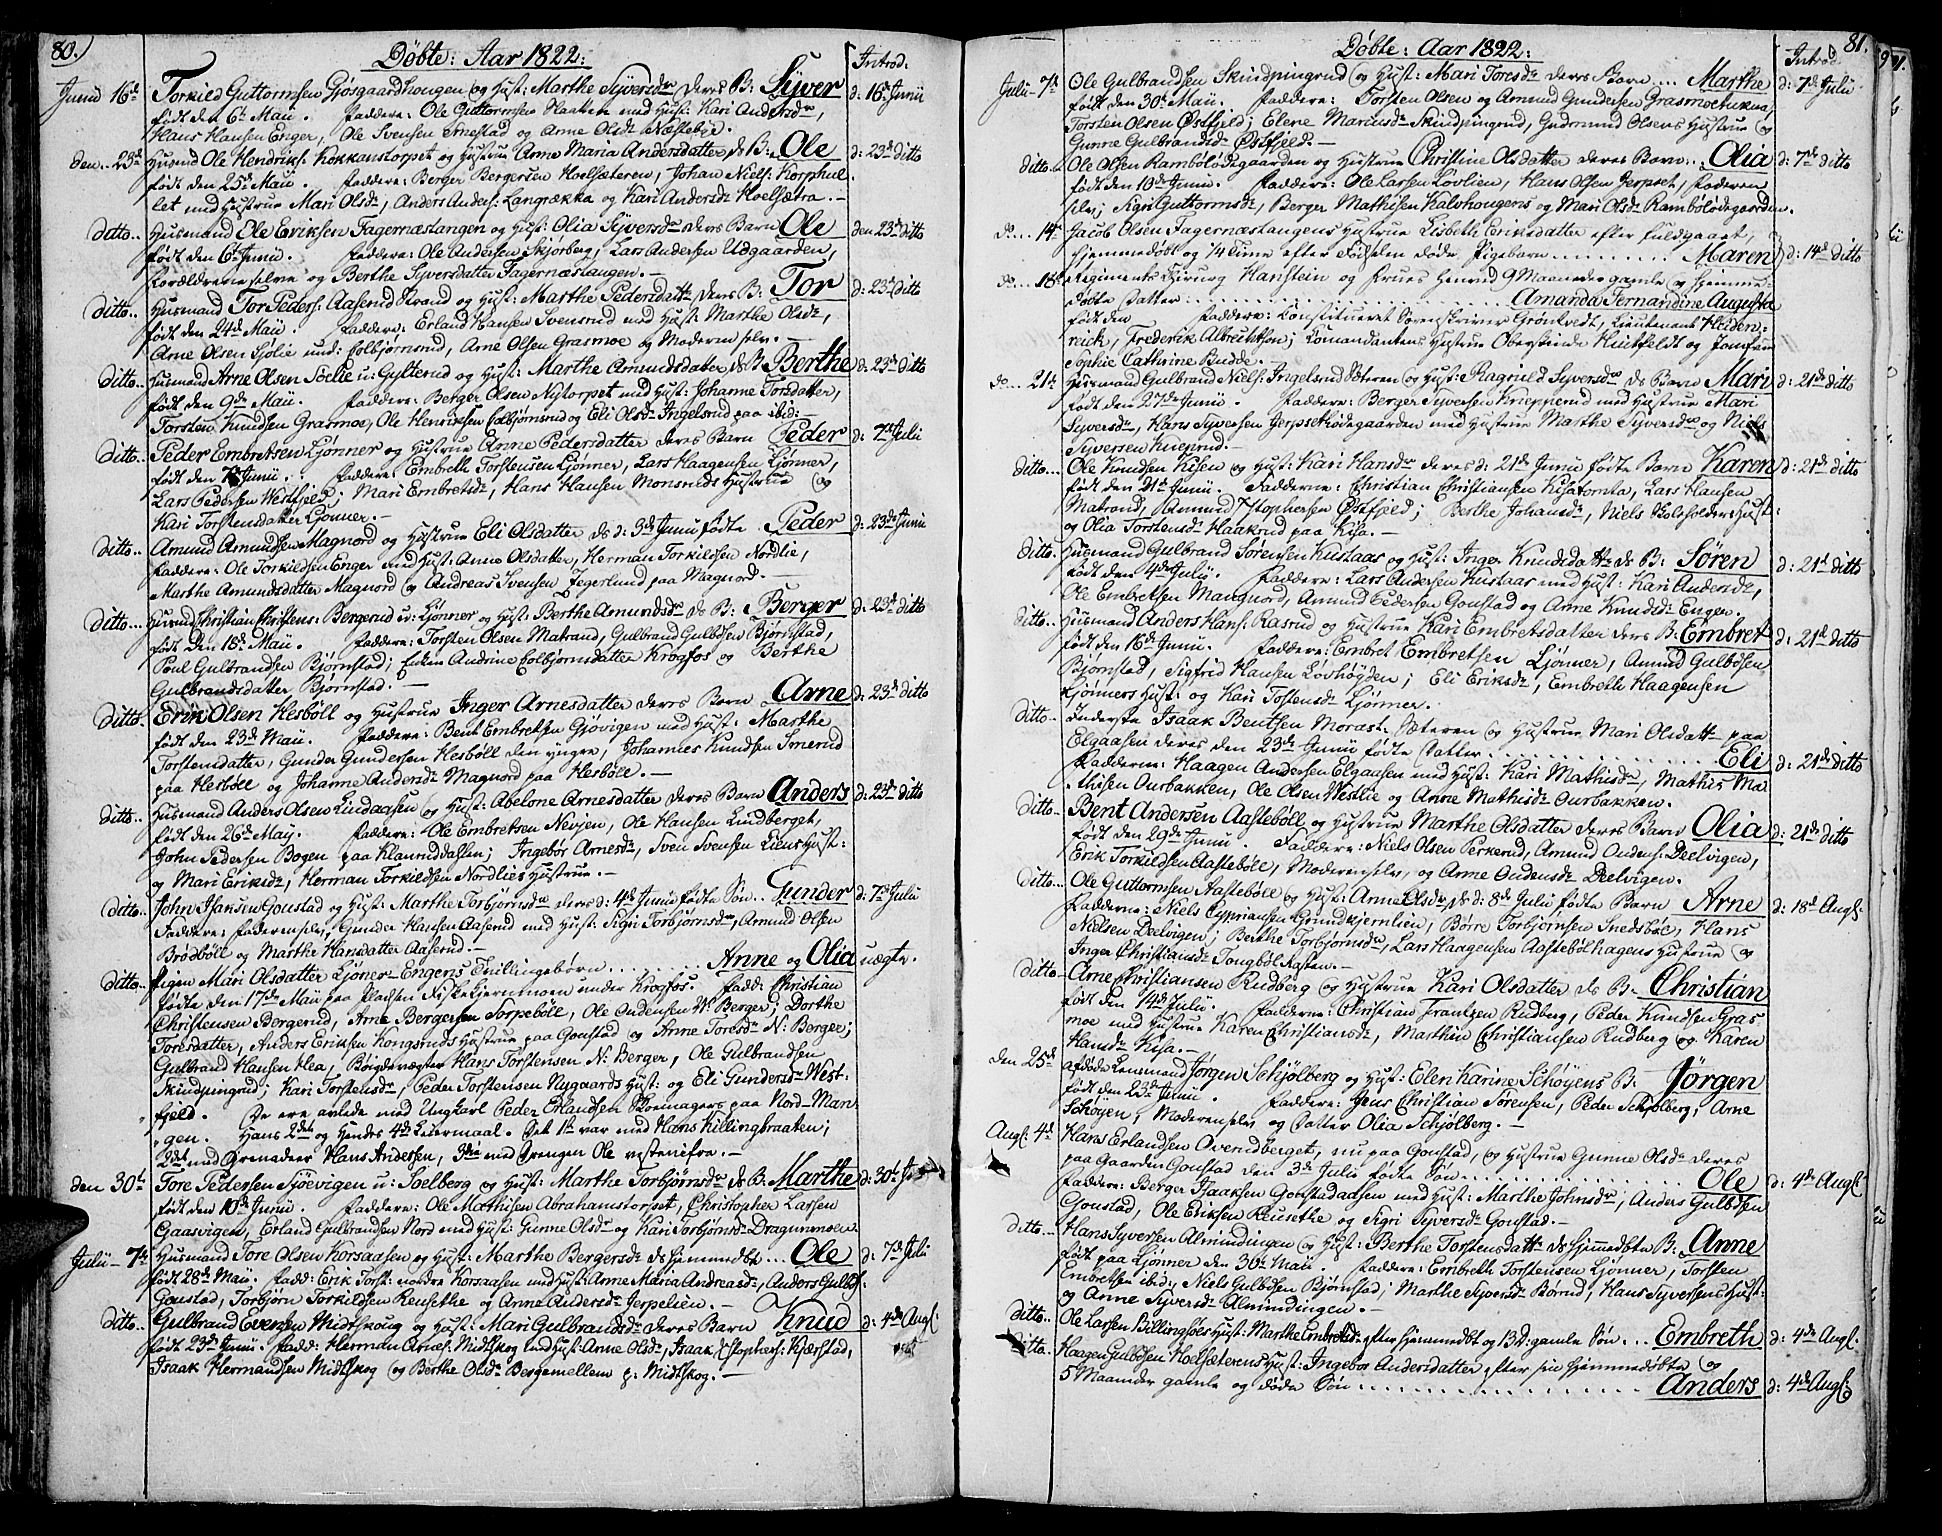 80.)
Döbte: Aar 1822:
Introd:
Junii 16d Torkild Guttormsen Gjøsgaardhougen og Hust: Marthe Syversdr deres B: Syver d: 16d Junii
født den 6te Maii. Faddere: Ole Guttormsen Plaaten med Hust: Kari Andersdr,
Hans Hansen Enger, Ole Svensen and Arne Olsdr
den.. 23d Husmd Ole Hendriks: Kokkanstorpet og Hustrue Anne Maria Andersdatter, ds B: Ole d: 23d ditto
født den 25d Maii. Faddere: Berger Bergersen Hoelsæteren, Johan Niels: Korphul
let med Hustrue Mari Olsdr, Anders Anders: Langrækka og Kari Andersdr Hoelsætra.-
ditto.. Husmand Ole Eriksen Fagernæstangen og Hust: Olia Syversdr deres Barn Ole den 23d ditto
født den 6te Junii. Faddere: Ole Andersen Skjorberg, Lars Andersen Udgaarden,
Forældrene selve og Berthe Syversdatter Fagernæstangen.-
ditto.. Husmand Tor Peders: Aaserud Strand og Hust: Marthe Pedersdattr deres B: Tor d: 23d ditto
født den 24d Maii. Faddere: Erland Hansen Svensrud med Hust: Marthe Olsdr,
Arne Olsen Sjølie und: Colbjørnsrud, Arne Olsen Grasmoe og Moderen selv.-
ditto.. Husmand Arne Olsen Sølie u: Gulterud og Hust: Marthe Amundsdatter ds B: Berthe d: 23d ditto
født den 9de Maii. Faddere: Berger Olsen Nytorpet med Hust: Johanne Torsdatter,
Torsten Knudsen Grasmoe, Ole Henriksen Colbjørnsrud og Eli Olsdr Ingelsrud paa ibid:-
ditto.. Peder Embretsen Ljønner og Hustrue Anne Pedersdatter deres Barn Peder d: 7de Julii
født den 7de Junii. Faddere: Embreth Torstensen Ljønner, Lars Haagensen Ljønner,
Lars Pedersen Westfjeld; Mari Embretsdr, Hans Hansen Monsruds Hustrue og
Kari Torstensdatter Ljønner.-
ditto.. Amund Amundsen Magnord og Hustrue Eli Olsdatter ds d: 3de Junii fødte Peder d: 23de Junii
Faddere: Ole Torkildsen Enger med Hust: Anne Olsdatter, Herman Torkildsen Nordlie,
Marthe Amundsdatter Magnord og Andreas Svensen Jegerlund paa Magnord.-
ditto... Husmd Christian Christens: Bergerud u: Ljønner og Hust: Berthe Amundsdr ds B: Berger d: 23de ditto
født den 18de Maii. Faddere: Torsten Olsen Matrand, Gulbrand Gulbdsen Bjørnstad,
Poul Gulbrandsen Bjørnstad; Enken Andrine Colbjørnsdatter Krogfos og Berthe
Gulbrandsdatter Bjørnstad.-
ditto.. Erik Olsen Hesböll og Hustrue Inger Arnesdatter deres Barn Arne d: 23de ditto
født den 23de Maii. Faddere: Bent Embretsen Gjövigen med Hust: Marthe
Torstensdatter, Gunder Gundersen Hesböll den yngre, Johannes Knudsen Smerud
paa Hesböll og Johanne Andersdr Magnord paa Hesböle.-
ditto.. Husmand Anders Olsen Lindaasen og Hust: Abelone Arnesdatter deres Barn Anders d: 23de ditto
født den 26de May. Faddere: Ole Embretsen Nevjen, Ole Hansen Lindberget,
John Pedersen Bogen paa; Ingebør Arnesdr, Sven Svensen Liens Hust:
og Mari Eriksdr, Herman Torkildsen Nordlies Hustrue.-
ditto.. John Isaksen Goustad og Hust: Marthe Torbjørnsdr deres d: 4de Junii fødte Søn.. Gunder d: 7de Julii
Faddere: Faderen selv, Gunder Hansen Aaserud med Hust: Sigri Torbjørnsdr, Amund Olsen
Brødböll og Marthe Hansdatter Aaserud.-
ditto.. Pigen Mari Olsdatter Ljöner-Engens Tvillingebørn ....... Anne og Olia uægte.
fødte den 17de Maii paa Pladsen Fiskekjernmoen under Krogfos. Fadd: Christian
Christensen Bergerud, Arne Bergersen Torpeböll, Ole Audensen N: Berger; Dorthe
Toresdatter, Anders Eriksen Kongsruds Hustrue paa Goustad og Anne Toresdr N: Berger;
Gulbrand Hansen Klea, Böigdevægter Hans Torstensen N: Berger, Ole Gulbrandsen
Skindpingrud; Kari Torstensdr, Peder Torstensen Nygaards Hust: og Eli Gundersdr West-
fjeld. De ere avlede med Ungkarl Peder Erlandsen Skomager paa Nord-Man
gen. Hans 2det og Hendes 4de Leiermaal. Det 1te var med Hans Killingbraaten;
2det med Grenadeer Hans Andersen, 3die med Drengen Ole vestenifra.-
den 30te Tore Pedersen Sjöevigen u: Soelberg og Hust: Marthe Torbjørnsdr ds B: Marthe d: 30te
født den 10de Junii. Faddere: Ole Mathisen Abrahamstorpet, Christopher Larsen
Gaasvigen, Erland Gulbrandsen Nord med Hust: Gunne Olsdr og Kari Torbjørnsdr Dragunmoen.
Julii - 7de Husmand Tore Olsen Korsaasen og Hust: Marthe Bergersdr ds hjemmedbt ... Ole d: 7de Julii
født 28de Maii. Fadd: Erik Torst: nordre Korsaasen med Hust: Anne Maria Andreasdr, Anders Gulbds:
Goustad, Torbjørn Torkildsen Reusethe og Anne Andersdr Jerpelien.-
ditto.. Gulbrand Evensen Midtskoug og Hust: Mari Gulbrandsdr deres Barn Knud d: 4de Augs:
født 23de Junii. Fadd: Herman Arnes: Midtskog med Hust: Anne Olsdr, Isaak Xstophers: Kjærstad,
Isaak Hermandsen Midtskog og Berthe Olsdr Bergemellem p: Midtskog.-
81.
Döbte: Aar 1822:
Introd:
Julii - 7de Ole Gulbrandsen Skindpingrud og Hust: Mari Toresdr deres Barn... Marthe d: 7de Julii
født den 30te Maii. Faddere: Torsten Olsen og Amund Gundersen Grasmoehukua,
Torsten Olsen Østfjeld; Elene Mariusdr Skindpingrud, Gudmund Olsens Hustrue og
Gunne Gulbrandsdr Østfjeld.-
ditto.. Ole Olsen Ramboløddegaarden og Hustrue Christine Olsdatter deres Barn... Olia d: 7de ditto
født den 10de Junii. Faddere: Ole Larsen Lovlien, Hans Olsen Jerpset, Faderen
selv; Sigri Guttormsdr, Berger Mathisen Kalvhougens og Mari Olsdr Ramboløddegaarden.
do.... 14de Jacob Olsen Fagernæstangens Hustrue Lisbeth Eriksdatter efter fuldgaaet,
hjemmedøbt og 1/4 Time efter Födselen døde Pigebarn ............ Maren d: 14de ditto
do... 18de Regiments Chirurg Hanstein og Frues henved 9 Maaneder gamle og hjemme-
døbte Datter ................. Amanda Fernandine Augusta
født den Faddere: Constitueret Sorenskriver Grönkvedt, Lieutenant Heiden-
reich, Frederik Albrechtson; Komandantens Hustrue Oberstinde Huitfeldt og Jomfrue
Sophie Cathrine Budde.
do... 21de Husmand Gulbrand Niels: Ingelsrud Sæteren og Hust: Ragnild Syversdr ds Barn Mari d: 21de ditto
født den 27de Junii. Faddere: Berger Syversen Knæpperud med Hustrue Mari
Syversdr, Hans Syversen Jerpsethødegaarden med Hustrue Marthe Syversdr og Niels
Syversen Knæprud.-
ditto... Ole Knudsen Kisen og Hust: Kari Hansdr deres d: 21de Junii fødte Barn Karen d: 21de ditto
født den 21de Junii. Fadderne: Christian Christiansen Kisatomta, Lars Hansen
Matrand, Amund Xstophersen Østfjeld; Berthe Johansdr, Niels Hust:
og Olia Torstensdr Haakrud paa Kisa.-
ditto. Husmand Gulbrand Sørensen Kustaas og Hust: Inger Knudsdattr ds B: Søren d: 21de ditto
født den 4de Julii. Faddere: Lars Andersen Kustaas med Hust: Kari Andersdr,
Ole Embretsen Mangnord, Amund Pedersen Goustad og Arne Knudsdr Engen.
ditto.. Husmand Anders Hans: Rasrud og Hustrue Kari Embretsdatter deres B: Embret d: 21de ditto
født den 16de Junii. Faddere: Embret Embretsen Ljönner, Amund Gulbdsen
Bjørnstad, Sigfrid Hansen Lövhögden; Eli Eriksdr, Embreth Haagensen
Ljønners Hust: og Kari Tostensdr Ljønner.
ditto.. Inderste Isaak Bentsen Morast-Sæteren og Hustrue Mari Olsdattr paa
Elgaasen deres den 23de Junii fødte Datter ................. Eli d: 21de ditto
Fadderne: Haagen Andersen Elgaasen med Hust: Kari Mathisdr, Mathis Ma
thisen Ourbakken, Ole Olsen Westlie og Anne Mathisdr Ourbakken.
ditto- Bent Andersen Aasteböll og Hustrue Marthe Olsdatter deres Barn Olia d: 21de ditto
født den 29de Junii. Faddere: Niels Olsen Perkerud, Amund Audens: Deelvigen,
Erik Torkildsen Aasteböll, Moderen selv, og Arne Audensdr Deelvigen.
ditto.. Ole Guttormsen Aasteböll og Hust: Anne Olsdr ds d: 8de Julii fødte Barn Arne d: 18de Augs:
Fadderne: Niels Cyprianssen Grundkjernlien, Børre Torbjørnsen Snedsböl, Hans
Nielsen Deelvigen; Berthe Torbjørnsdr, Lars Haagensen Aasteböllhagens Hustrue og
Inger Christiansdr Tongböllstasten.-
ditto- Arne Christiansen Rudberg og Hustrue Kari Olsdatter ds B: Christian
født den 14de Julii. Fadderne: Christian Frantzen Rudberg, Peder Knudsen Gras
moe med Hustrue Karen Christiansdr, Marthin Christiansen Rudberg og Karen
Hansdr Kisa.-
den 25de afdøde Lensmand Jørgen Schjølberg og Hust: Elen Karine Schøyens B: Jørgen
født den 23de Junii. Faddere: Jens Christian Sørensen, Peder Schjølberg; Arne
Schøyen, Moderen selv og Datter Olia Schjølberg.-
Augs: 4de Hans Erlandsen Overudberget, nu paa Goustad, og Hustrue Gunne Olsdr deres
paa Gaarden Goustad den 3de Julii fødte Søn ............... Ole d: 4de Augs:
Faddere: Berger Isaaksen Goustadaasen med Hust: Marthe Johnsdr, Anders Gulbdsen
Goustad, Ole Eriksen Reusethe og Sigri Syversdr Goustad.-
ditto.. Hans Syversen Almindingen og Hustrue Berthe Torstensdattr ds hjemmedbte B: Anne
født paa Ljønner den 30te Maii. Faddere: Embreth Torstensen Ljönner, Torsten
Embretsen ibid:, Niels Gulbdsen Bjørnstad; Marthe Syversdr Børud, Hans Syversens Hust:
og Anne Syversdr Almindingen.-
ditto Ole Larsen Billingsöes Hust: Marthe Embretsdr efter hjemmedbt og 13 D. gamle Søn.. Embreth d: 4de Augs:
ditto. Haagen Gulbdsen Hoelsæterens Hust: Ingebor Andersdatter efter sin hjemmedøbte og
5 Maaneder gamle og døde Søn ................. Anders d: 4de Augs: